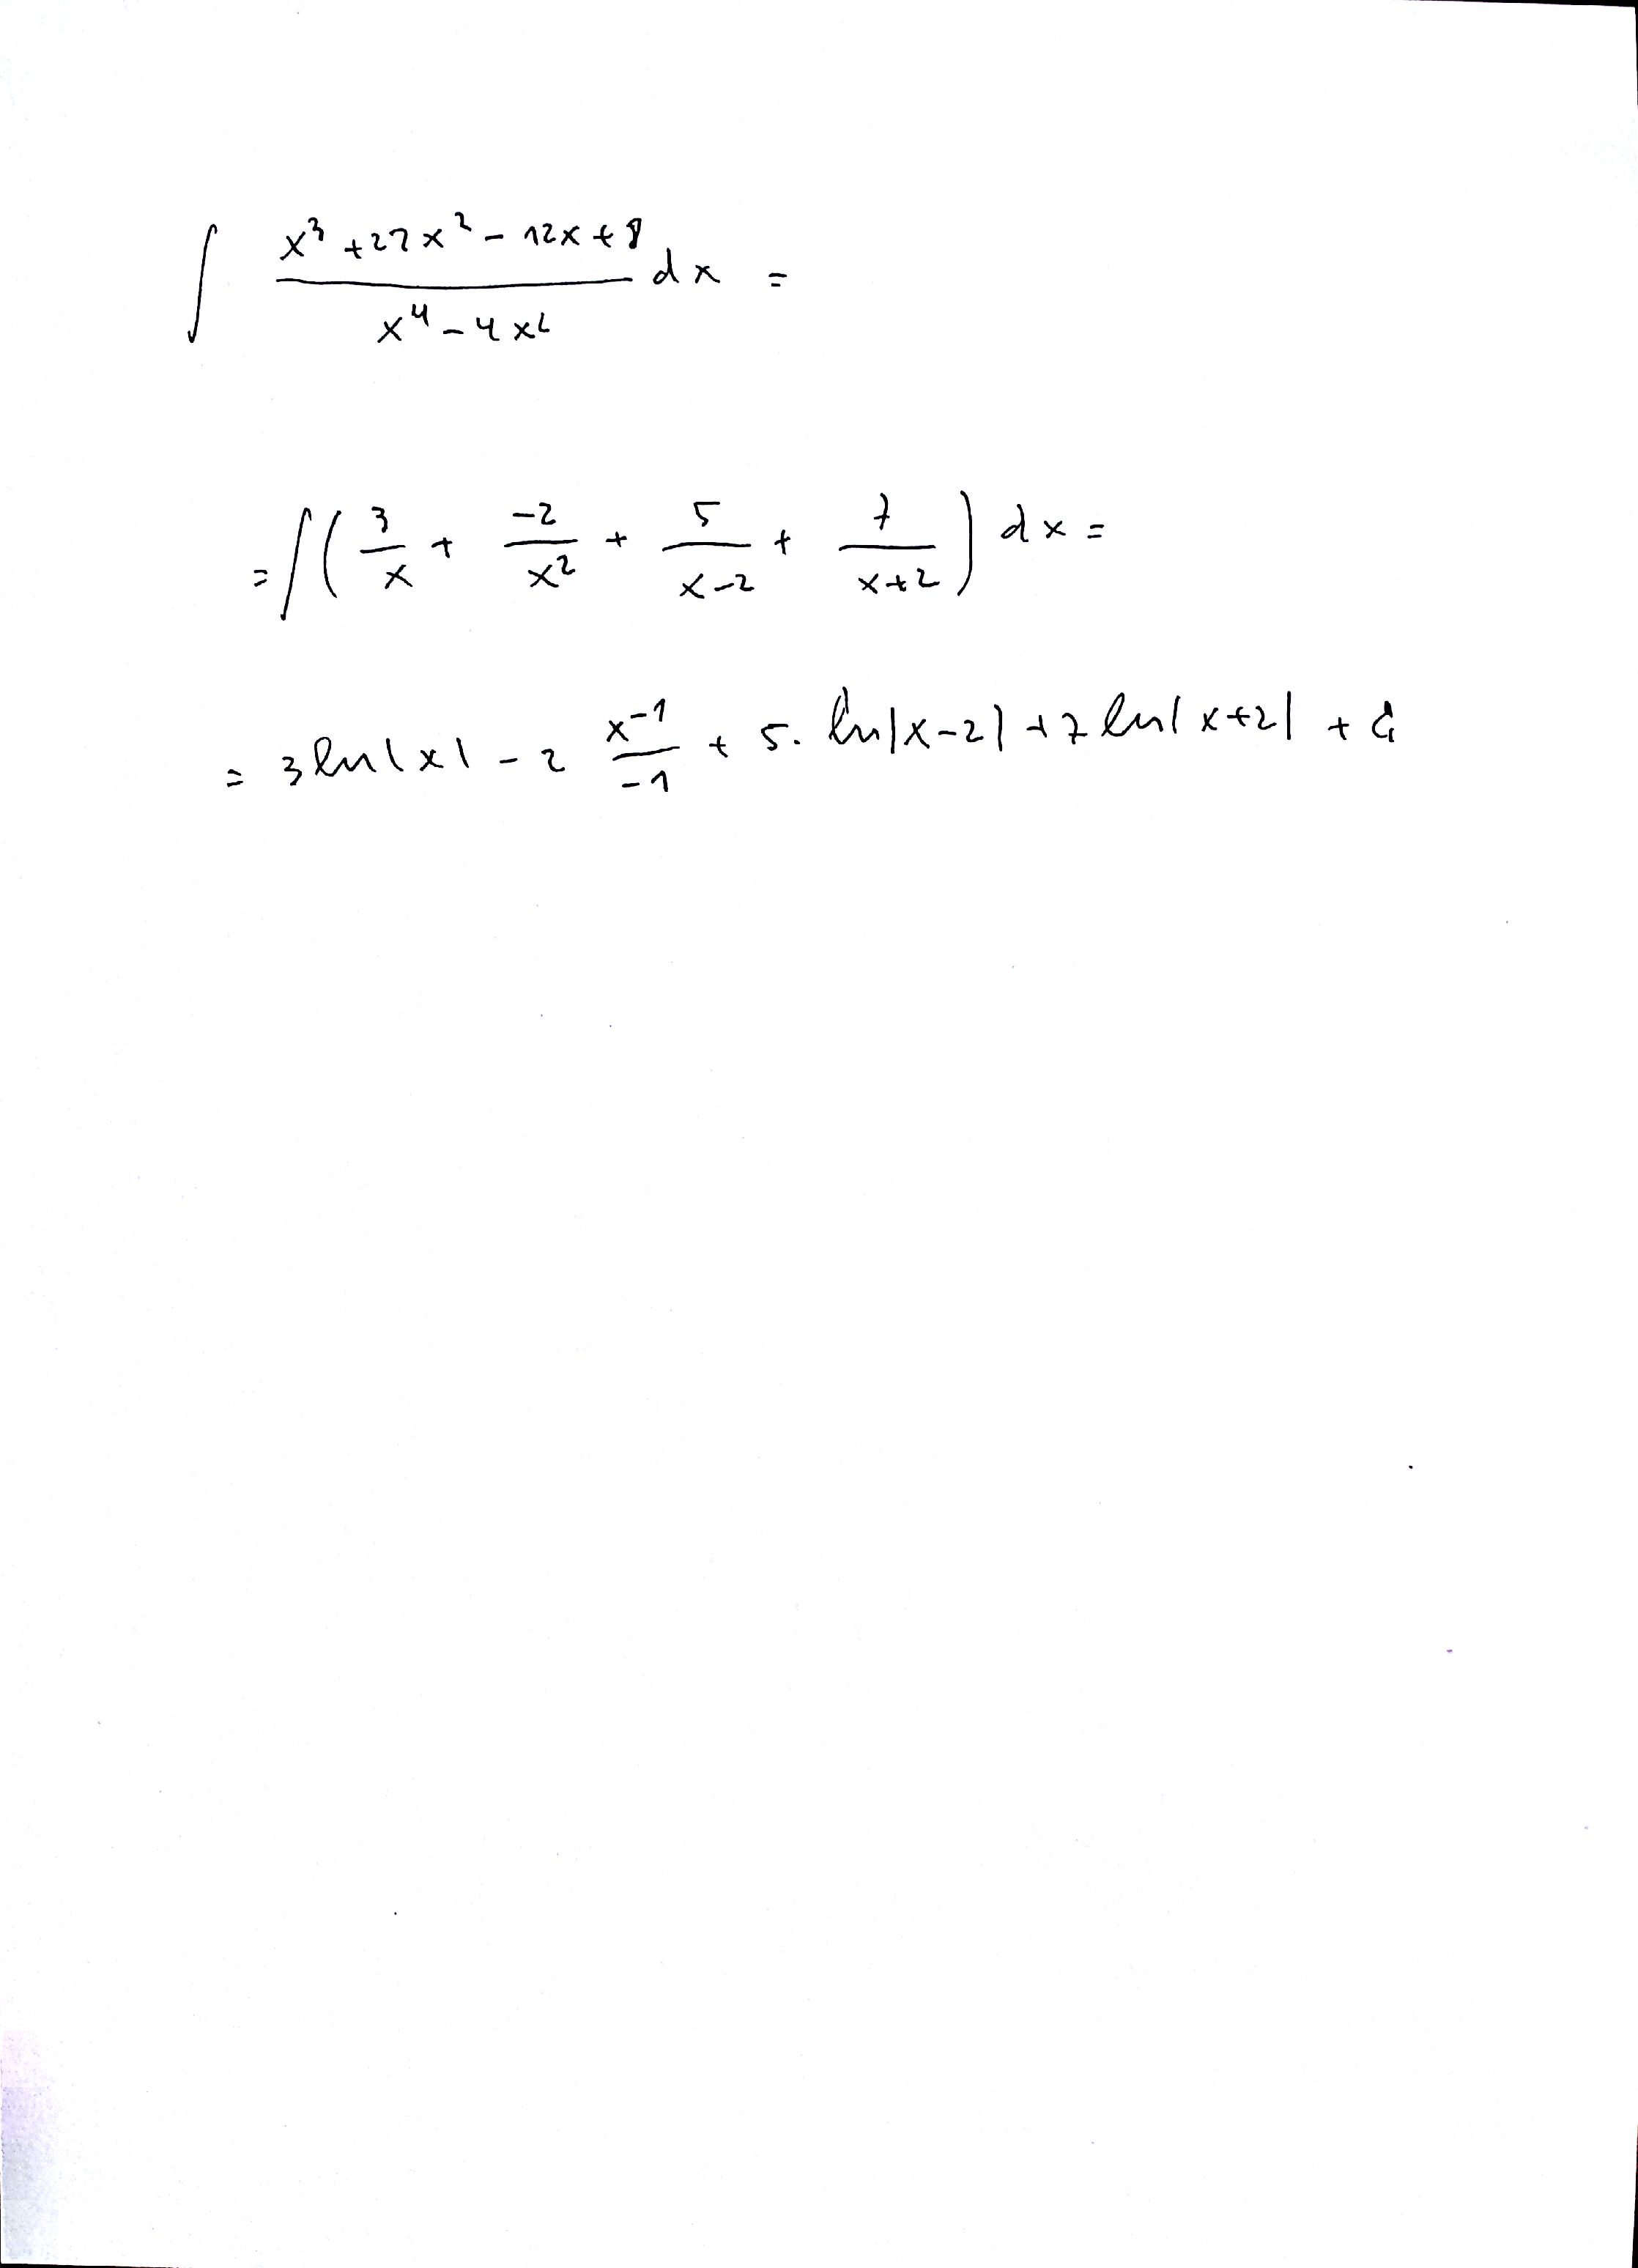 ∫ (x³ + 27x² - 12x + 8)/(x⁴ - 4x²) dx =
= ∫ (3/x + -2/x² + 5/(x-2) + 7/(x+2)) dx =
= 3 ln|x| - 2 x⁻¹/-1 + 5· ln|x-2| + 7 ln|x+2| + C